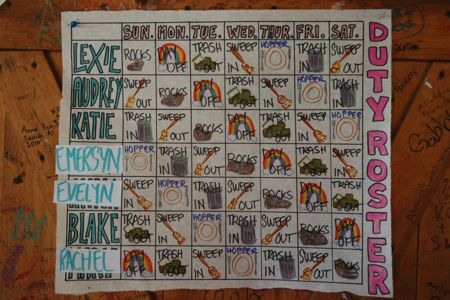 SUN. MON. TUE. WED. THUR. FRI. SAT.
LEXIE ROCKS DAY OFF TRASH OUT SWEEP IN HOPPER TRASH IN SWEEP OUT
AUDREY SWEEP OUT ROCKS DAY OFF TRASH OUT SWEEP IN HOPPER TRASH IN
KATIE TRASH IN SWEEP OUT ROCKS DAY OFF TRASH OUT SWEEP IN HOPPER
EMERSYN HOPPER TRASH IN SWEEP OUT ROCKS DAY OFF TRASH OUT SWEEP IN
EVELYN SWEEP IN HOPPER TRASH IN SWEEP OUT ROCKS DAY OFF TRASH OUT
BLAKE TRASH OUT SWEEP IN HOPPER TRASH IN SWEEP OUT ROCKS DAY OFF
RACHEL DAY OFF TRASH OUT SWEEP IN HOPPER TRASH IN SWEEP OUT ROCKS
DUTY ROSTER